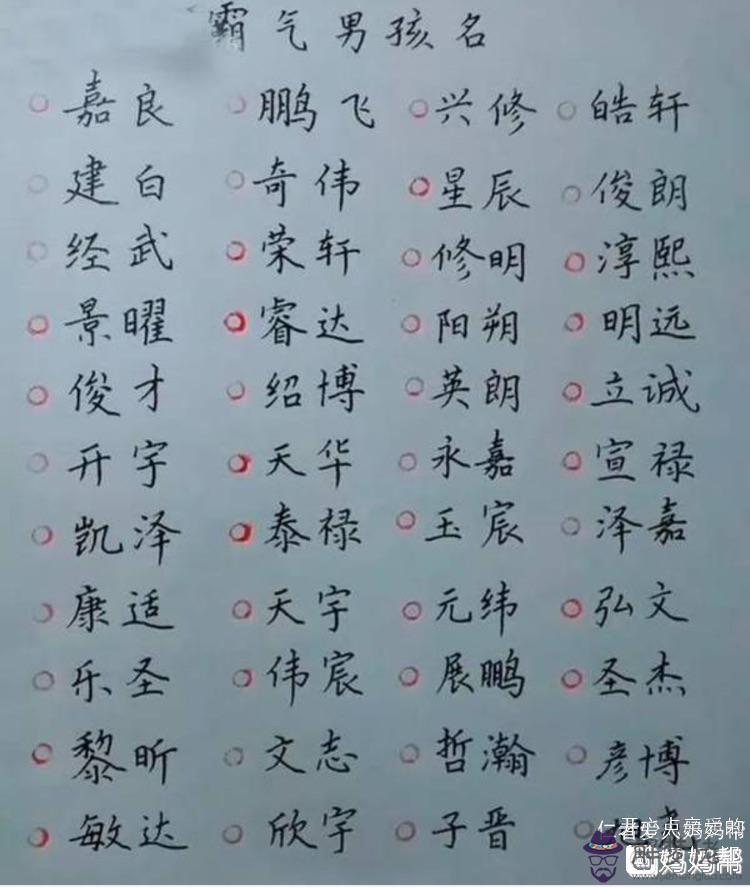 霸气男孩名
嘉良 鹏飞 兴修 皓轩
建白 奇伟 星辰 俊朗
经武 荣轩 修明 淳熙
景曜 睿达 阳朔 明远
俊才 绍博 英朗 立诚
开宇 天华 永嘉 宣禄
凯泽 泰禄 玉宸 泽嘉
康适 天宇 元纬 弘文
乐圣 伟宸 展鹏 圣杰
黎昕 文志 哲瀚 彦博
敏达 欣宇 子晋
妈妈帮